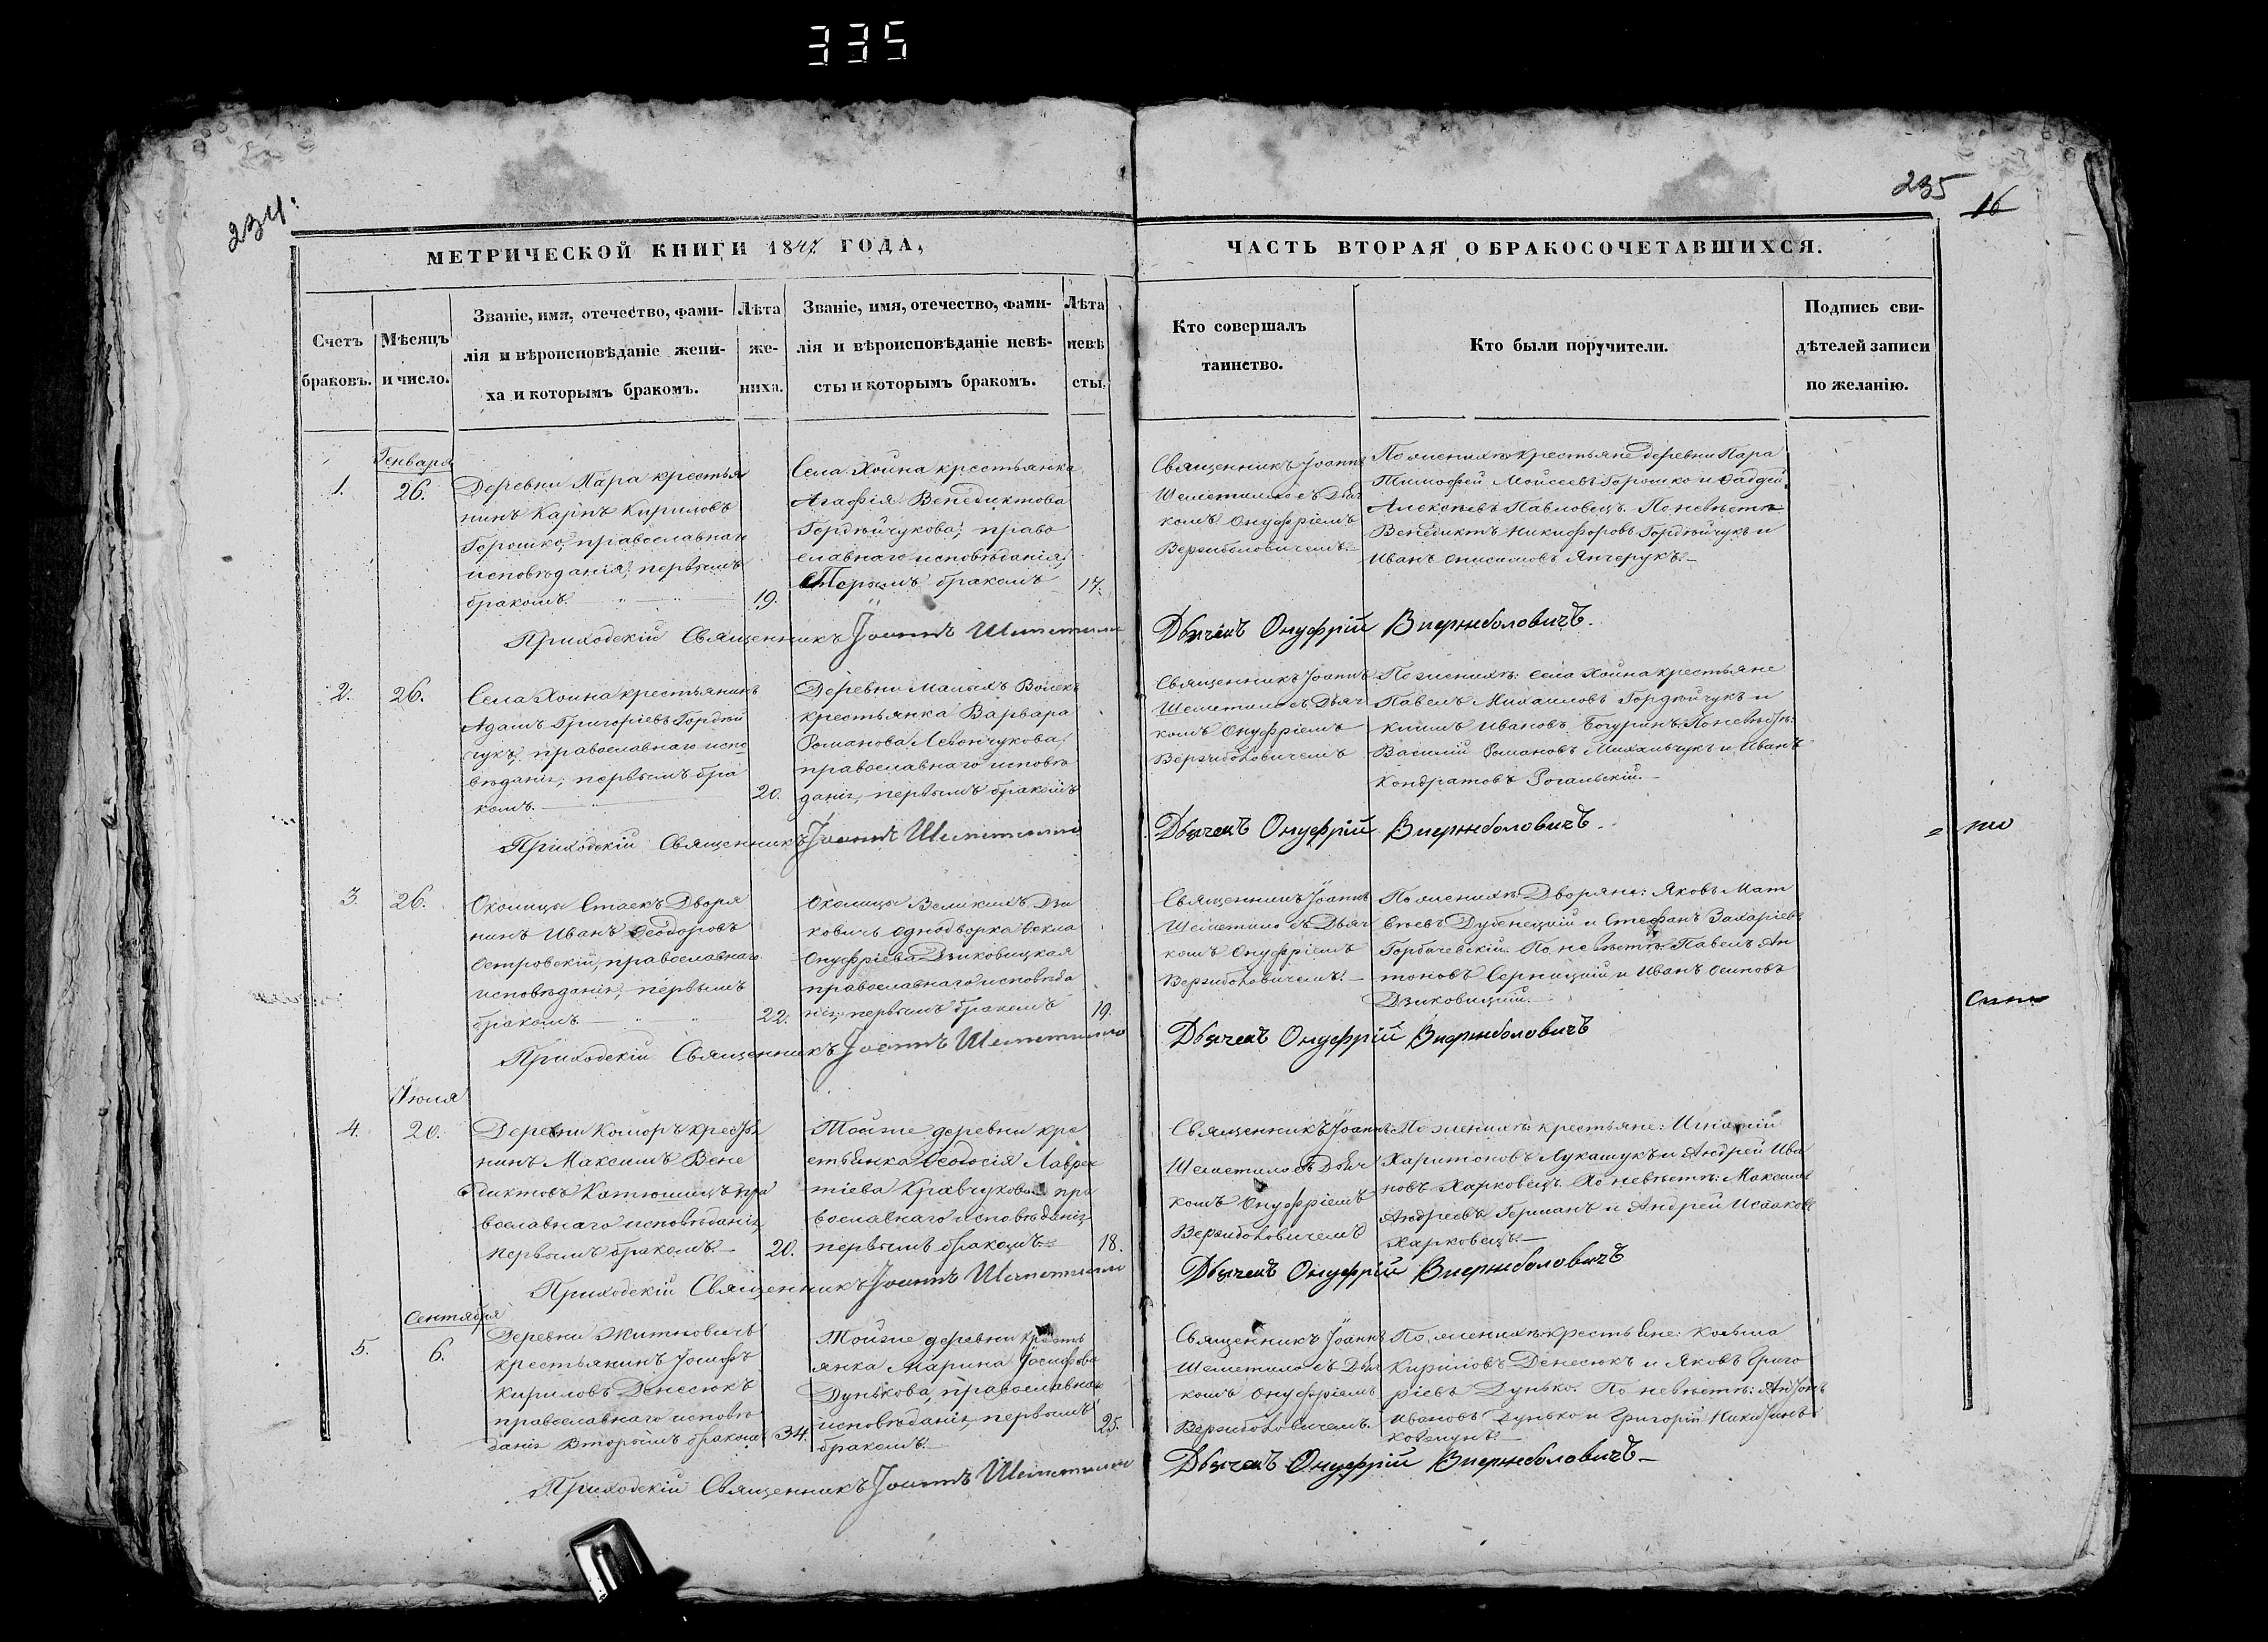 335
234:
235
16
МЕТРИЧЕСКОЙ КНИГИ 1847 ГОДА,
ЧАСТЬ ВТОРАЯ О БРАКОСОЧЕТАВШИХСЯ.
Счетъ
браковъ.
Мѣсяцъ
и число.
Званіе, имя, отечество, фами-
лія и вѣроисповѣданіе жени-
ха и которымъ бракомъ.
Лѣта
же-
ниха.
Званіе, имя, отечество, фами-
лія и вѣроисповѣданіе невѣ-
сты и которымъ бракомъ.
Лѣта
невѣ
сты.
Кто совершалъ
таинство.
Кто были поручители.
Подпись сви-
дѣтелей записи
по желанію.
1.
Генваря
26.
Деревни Пара крестья
нинъ Карпъ Кириловъ
Горошко, православнаго
исповѣданія, первымъ
бракомъ.
19.
Села Хойна крестьянка
Агафія Венедиктова
Гордѣйчукова, право
славнаго исповѣданія,
бракомъ
17.
Священникъ Іоаннъ
Шеметилло съ Дьяч
комъ Онуфріемъ
Вержиболовичемъ.
По женихѣ крестьяне деревни Пара
Тимофей Моисеевъ Горошко и Фаддей
Алексѣевъ Павловецъ. По невѣстѣ
Венедиктъ Никифоровъ Гордѣйчукъ и
Иванъ Онисимовъ Янчерукъ.
Приходскій Священникъ Іоаннъ Шеметилло
Дьячекъ Онуфрій Вержболовичъ.
2.
26.
Села Хойна крестьянинъ
Адамъ Григорьевъ Гордѣй
чукъ, православнаго испо
вѣданія, первымъ бра
комъ.
20.
Деревни Малыхъ Волекъ
крестьянка Варвара
Романова Левончукова,
православнаго исповѣ
данія, первымъ бракомъ
Священникъ Іоаннъ
Шеметилло съ Дьяч
комъ Онуфріемъ
Вержиболовичемъ
По женихѣ: села Хойна крестьяне
Павелъ Михаиловъ Гордѣйчукъ и
Климъ Ивановъ Богуринъ. По невѣстѣ:
Василій Романовъ Михальчукъ и Иванъ
Кондратовъ Рогальскій.
Приходскій Священникъ Іоаннъ Шеметилло
Дьячекъ Онуфрій Вержболовичъ.
3.
26.
Околицы Стаекъ Дворя
нинъ Иванъ Ѳеодоровъ
Островскій, православнаго
исповѣданія, первымъ
бракомъ
22.
Околицы Великихъ Дзи
ковичь однодворка Ѳекла
Онуфріева Дзиковицкая
православнаго исповѣда
нія, первымъ бракомъ
19.
Священникъ Іоаннъ
Шеметилло съ Дьяч
комъ Онуфріемъ
Вержиболовичемъ.
По женихѣ: Дворяне: Яковъ Мат
вѣевъ Дубенецкій и Стефанъ Захаріевъ
Горбачевскій. По невѣстѣ: Павелъ Ан
тоновъ Серницкій и Иванъ Осиповъ
Дзиковицкій.
Приходскій Священникъ Іоаннъ Шеметилло
Дьячекъ Онуфрій Вержболовичъ
4.
Іюля
20.
Деревни Коморъ крестья
нинъ Максимъ Вене
диктовъ Катюшицъ пра
вославнаго исповѣданія,
первымъ бракомъ.
20.
Тойже деревни кре
стьянка Ѳеодосія Лаврен
тіева Кравчукова пра
вославнаго исповѣданія
первымъ бракомъ.
18.
Священникъ Іоаннъ
Шеметилло съ Дьяч
комъ Онуфріемъ
Вержиболовичемъ
По женихѣ: крестьяне: Игнатій
Харитоновъ Лукашукъ и Андрей Ива
новъ Харковецъ. По невѣстѣ: Максимъ
Андреевъ Германъ и Андрей Исааковъ
Харковецъ.
Приходскій Священникъ Іоаннъ Шеметилло
Дьячекъ Онуфрій Вержболовичъ
5.
Сентября
6.
Деревни Житновичь
крестьянинъ Іосифъ
Кириловъ Денесюкъ
православнаго исповѣ
данія вторымъ бракомъ
34.
Тойже деревни кресть
янка Марина Іосифова
Дунькова, православнаго
исповѣданія, первымъ
бракомъ.
25.
Священникъ Іоаннъ
Шеметилло съ Дьяч
комъ Онуфріемъ
Вержиболовичемъ.
По женихѣ: крестьяне: Козьма
Кириловъ Денесюкъ и Яковъ Григо
ріевъ Дунько. По невѣстѣ: Антонъ
Ивановъ Дунько и Григорій Никитинъ
Ковзунъ.
Приходскій Священникъ Іоаннъ Шеметилло
Дьячекъ Онуфрій Вержболовичъ